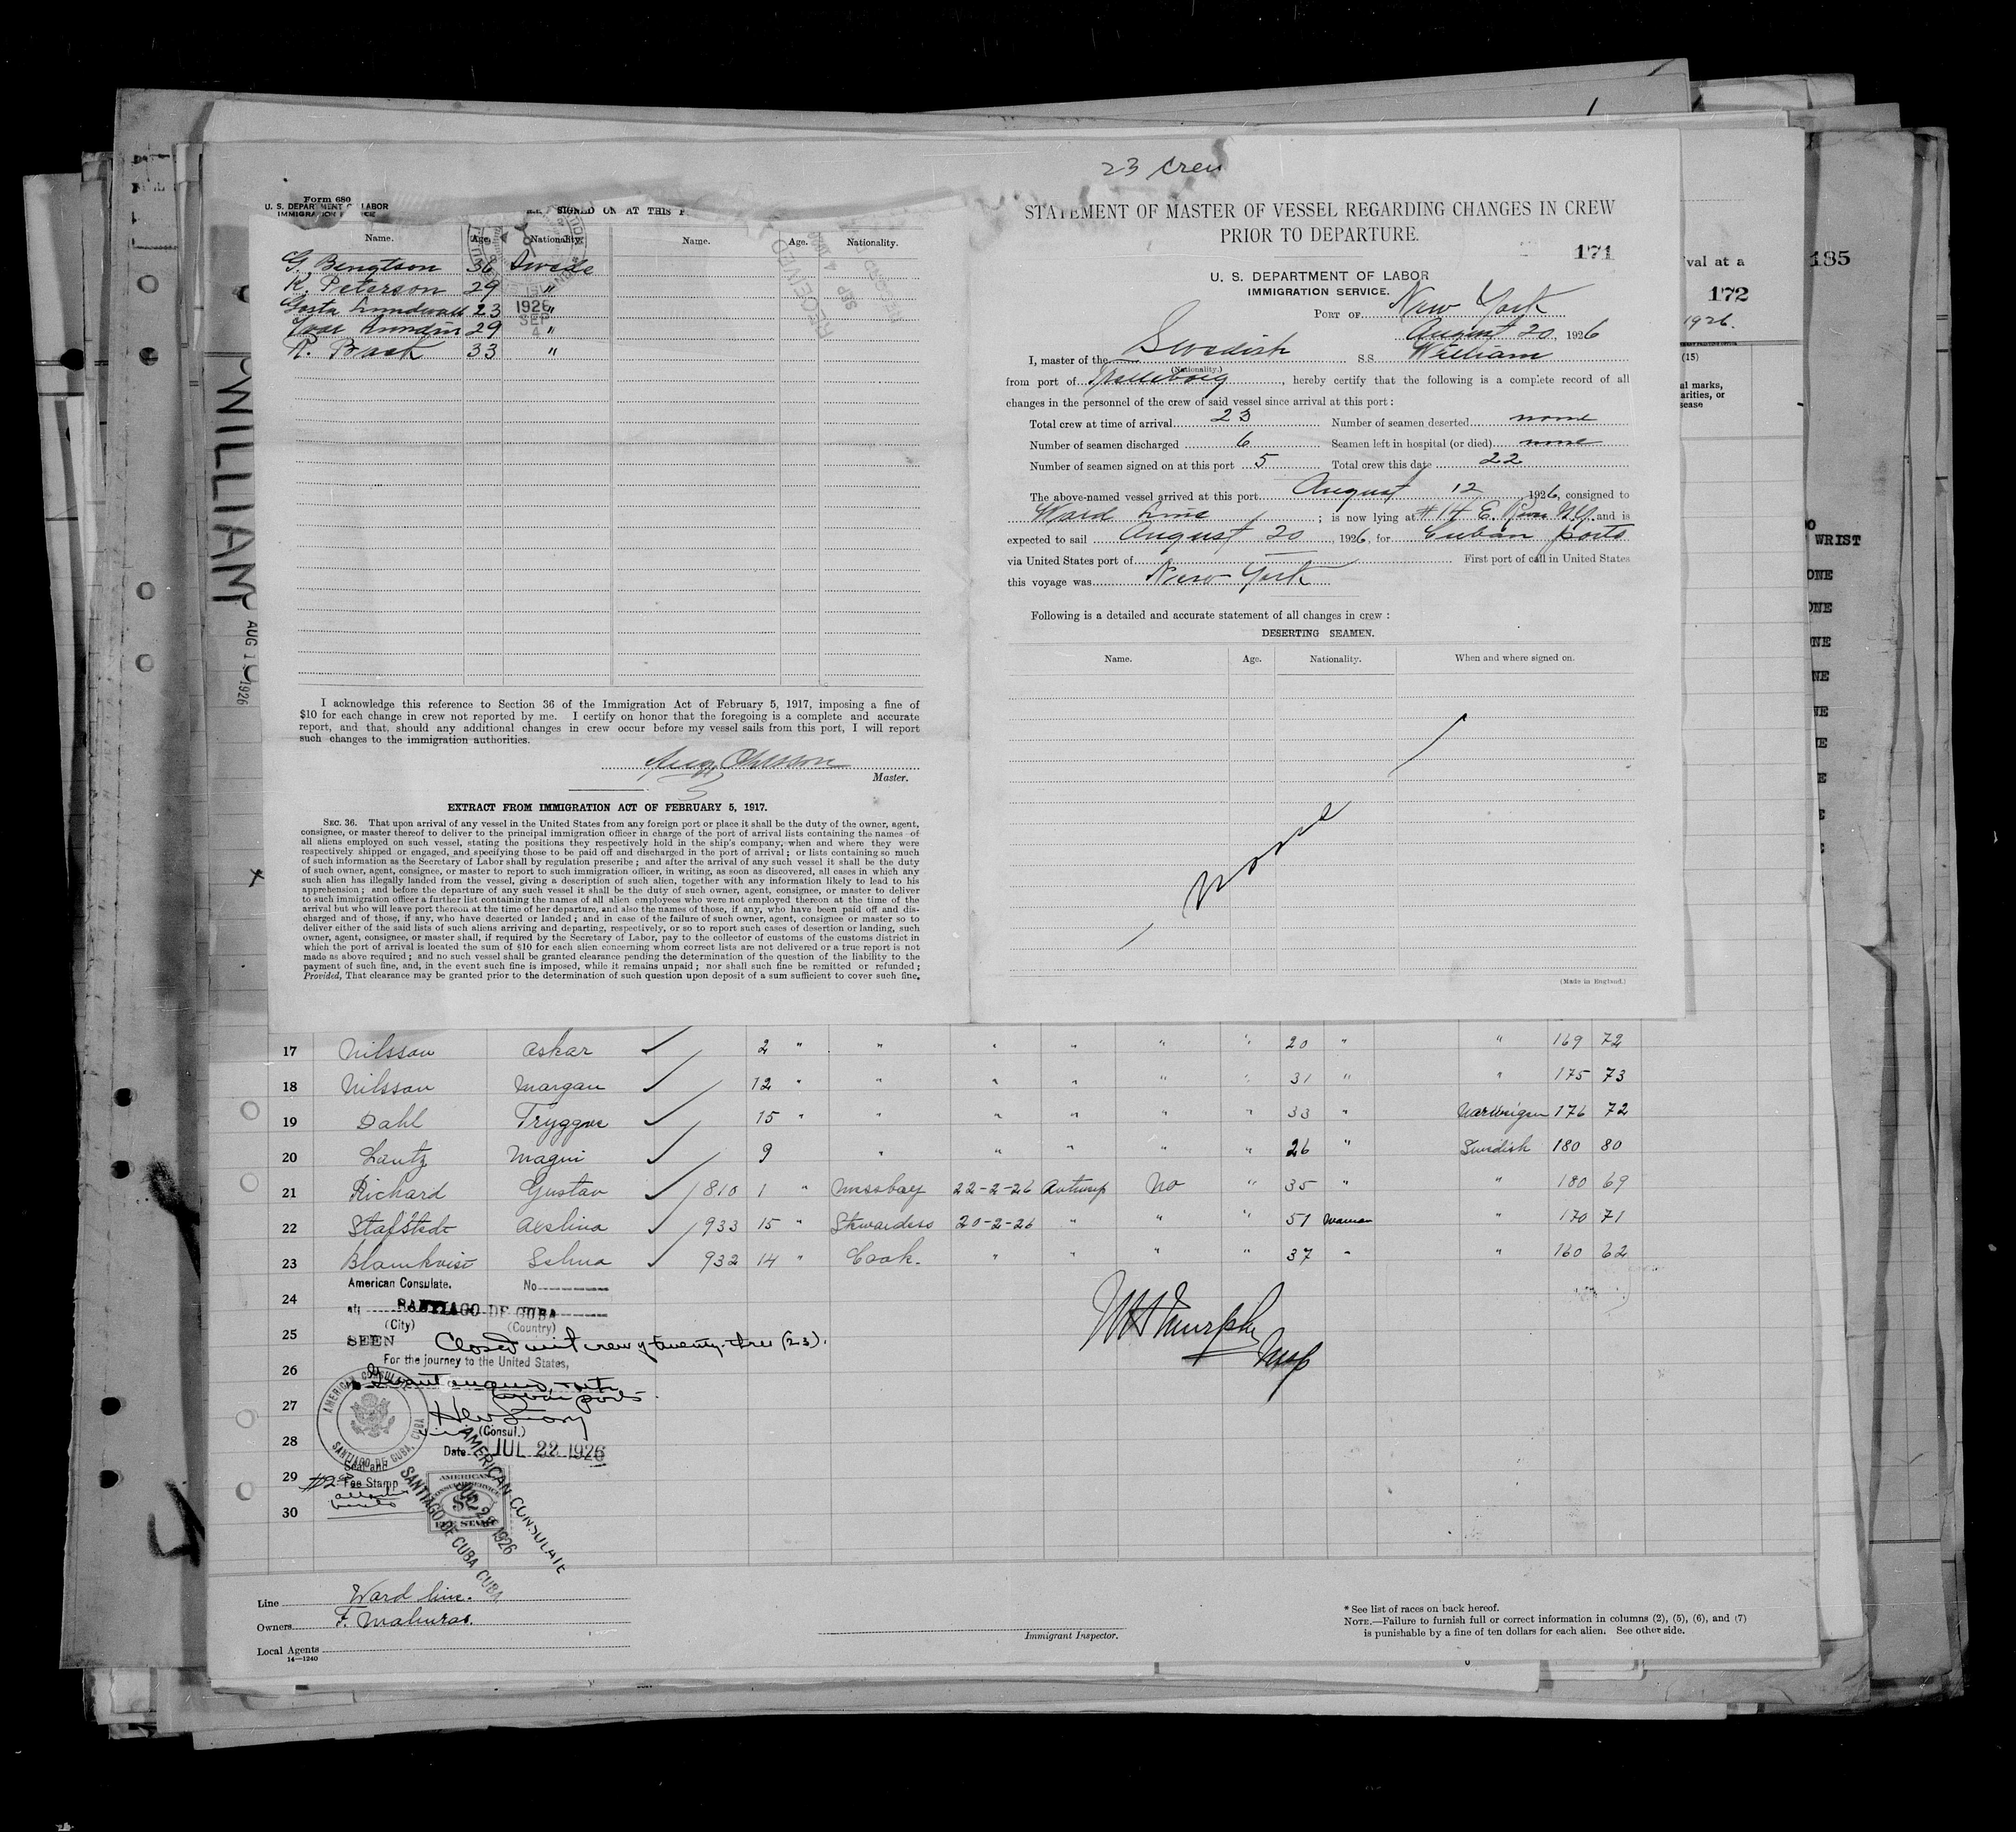 23 Crew
Form 680
U. S. DEPARTMENT OF LABOR
IMMIGRATION SERVICE
SIGNED ON AT THIS P
Name. Age. Nationality. Name. Age. Nationality.
G. Bengtson 36 Swede
K. Peterson 29 "
Gosta Lundwall 23 "
Ivar Lundin 29 "
R. Baak 33 "
1926
SEP
4
RECEIVED
SEP 4 1926
I acknowledge this reference to Section 36 of the Immigration Act of February 5, 1917, imposing a fine of
$10 for each change in crew not reported by me. I certify on honor that the foregoing is a complete and accurate
report, and that, should any additional changes in crew occur before my vessel sails from this port, I will report
such changes to the immigration authorities.
Master.
EXTRACT FROM IMMIGRATION ACT OF FEBRUARY 5, 1917.
SEC. 36. That upon arrival of any vessel in the United States from any foreign port or place it shall be the duty of the owner, agent,
consignee, or master thereof to deliver to the principal immigration officer in charge of the port of arrival lists containing the names of
all aliens employed on such vessel, stating the positions they respectively hold in the ship's company, when and where they were
respectively shipped or engaged, and specifying those to be paid off and discharged in the port of arrival; or lists containing so much
of such information as the Secretary of Labor shall by regulation prescribe; and after the arrival of any such vessel it shall be the duty
of such owner, agent, consignee, or master to report to such immigration officer, in writing, as soon as discovered, all cases in which any
such alien has illegally landed from the vessel, giving a description of such alien, together with any information likely to lead to his
apprehension; and before the departure of any such vessel it shall be the duty of such owner, agent, consignee, or master to deliver
to such immigration officer a further list containing the names of all alien employees who were not employed thereon at the time of the
arrival but who will leave port thereon at the time of her departure, and also the names of those, if any, who have been paid off and dis-
charged and of those, if any, who have deserted or landed; and in case of the failure of such owner, agent, consignee or master so to
deliver either of the said lists of such aliens arriving and departing, respectively, or so to report such cases of desertion or landing, such
owner, agent, consignee, or master shall, if required by the Secretary of Labor, pay to the collector of customs of the customs district in
which the port of arrival is located the sum of $10 for each alien concerning whom correct lists are not delivered or a true report is not
made as above required; and no such vessel shall be granted clearance pending the determination of the question of the liability to the
payment of such fine, and, in the event such fine is imposed, while it remains unpaid; nor shall such fine be remitted or refunded;
Provided, That clearance may be granted prior to the determination of such question upon deposit of a sum sufficient to cover such fine.
STATEMENT OF MASTER OF VESSEL REGARDING CHANGES IN CREW
PRIOR TO DEPARTURE.
171
U. S. DEPARTMENT OF LABOR
IMMIGRATION SERVICE.
PORT OF New York
August 20, 1926
I, master of the Swedish S.S. William
(Nationality.)
from port of Trelleborg, hereby certify that the following is a complete record of all
changes in the personnel of the crew of said vessel since arrival at this port:
Total crew at time of arrival 23 Number of seamen deserted none
Number of seamen discharged 6 Seamen left in hospital (or died) none
Number of seamen signed on at this port 5 Total crew this date 22
The above-named vessel arrived at this port August 12, 1926, consigned to
Ward Line; is now lying at #14 E. River N.Y. and is
expected to sail August 20, 1926, for Cuban ports
via United States port of First port of call in United States
this voyage was New York
Following is a detailed and accurate statement of all changes in crew:
DESERTING SEAMEN.
Name. Age. Nationality. When and where signed on.
none
(Made in England.)
val at a
172
1926.
(15)
al marks,
arities, or
sease
185
WRIST
ONE
ONE
NE
NE
NE
E
E
WILLIAM
AUG 1
1926
17 Nilsson Oskar 2 " " " " " " 20 " " 169 72
18 Nilsson Margan 12 " " " " " " 31 " " 175 73
19 Dahl Tryggve 15 " " " " " " 33 " Norwegian 176 72
20 Lantz Magni 9 " " " " " 26 " Swedish 180 80
21 Richard Gustav 810 1 " Messboy 22-2-26 Antwerp No " 35 " " 180 69
22 Stafstedt 933 15 " Stewardess 20-2-26 " " " 51 Woman " 170 71
23 Blomkvist Selma 932 14 " Cook. " " " " 37 " " 160 62
24
25
26
27
28
29
30
American Consulate. No
at SANTIAGO DE CUBA
(City) (Country)
SEEN Closed with crew of twenty-three (23).
For the journey to the United States,
(Consul.)
Date JUL 22 1926
AMERICAN CONSULATE
SANTIAGO DE CUBA, CUBA
Seal and
Fee Stamp
AMERICAN
CONSULAR SERVICE
$2
FEE STAMP
AMERICAN CONSULATE
JUL 22 1926
SANTIAGO DE CUBA, CUBA
Line Ward Line.
Owners
Local Agents
14—1240
Immigrant Inspector.
* See list of races on back hereof.
NOTE.—Failure to furnish full or correct information in columns (2), (5), (6), and (7)
is punishable by a fine of ten dollars for each alien. See other side.